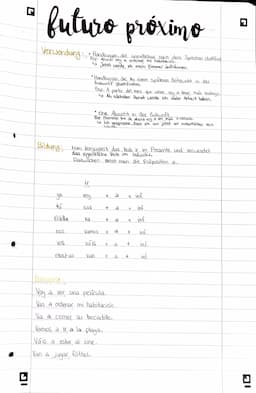 futuro próximo
Verwendung: • Handlungen, die unmittelbar nach dem Sprechen stattfinden
Esp: Ahora voy a ordenar mi habitación.
→ Jetzt werde ich mein Zimmer aufräumen.
• Handlungen, die zu einem späteren Zeitpunkt in der
Zukunft stattfinden.
Esp: A partir del mes que viene voy a tener más trabajo.
→ Ab nächsten Monat werde ich mehr Arbeit haben.
• eine Absicht in der Zukunft
Bildung: Man konjugiert das Verb ir im Presente und verwendet
das eigentliche Verb im Infinitiv.
Dazwischen setzt man die Präposition a.
ir
yo voy + a + inf.
tú vas + a + inf.
él/ella va + a + inf.
nos. vamos + a + inf.
vos. váis + a + inf.
ellos/as van + a + inf.
Voy a ver una película.
Vas a ordenar mi habitación.
Va a comer su bocadillo.
Vamos a ir a la playa.
Váis a estar al cine.
Van a jugar fútbol.